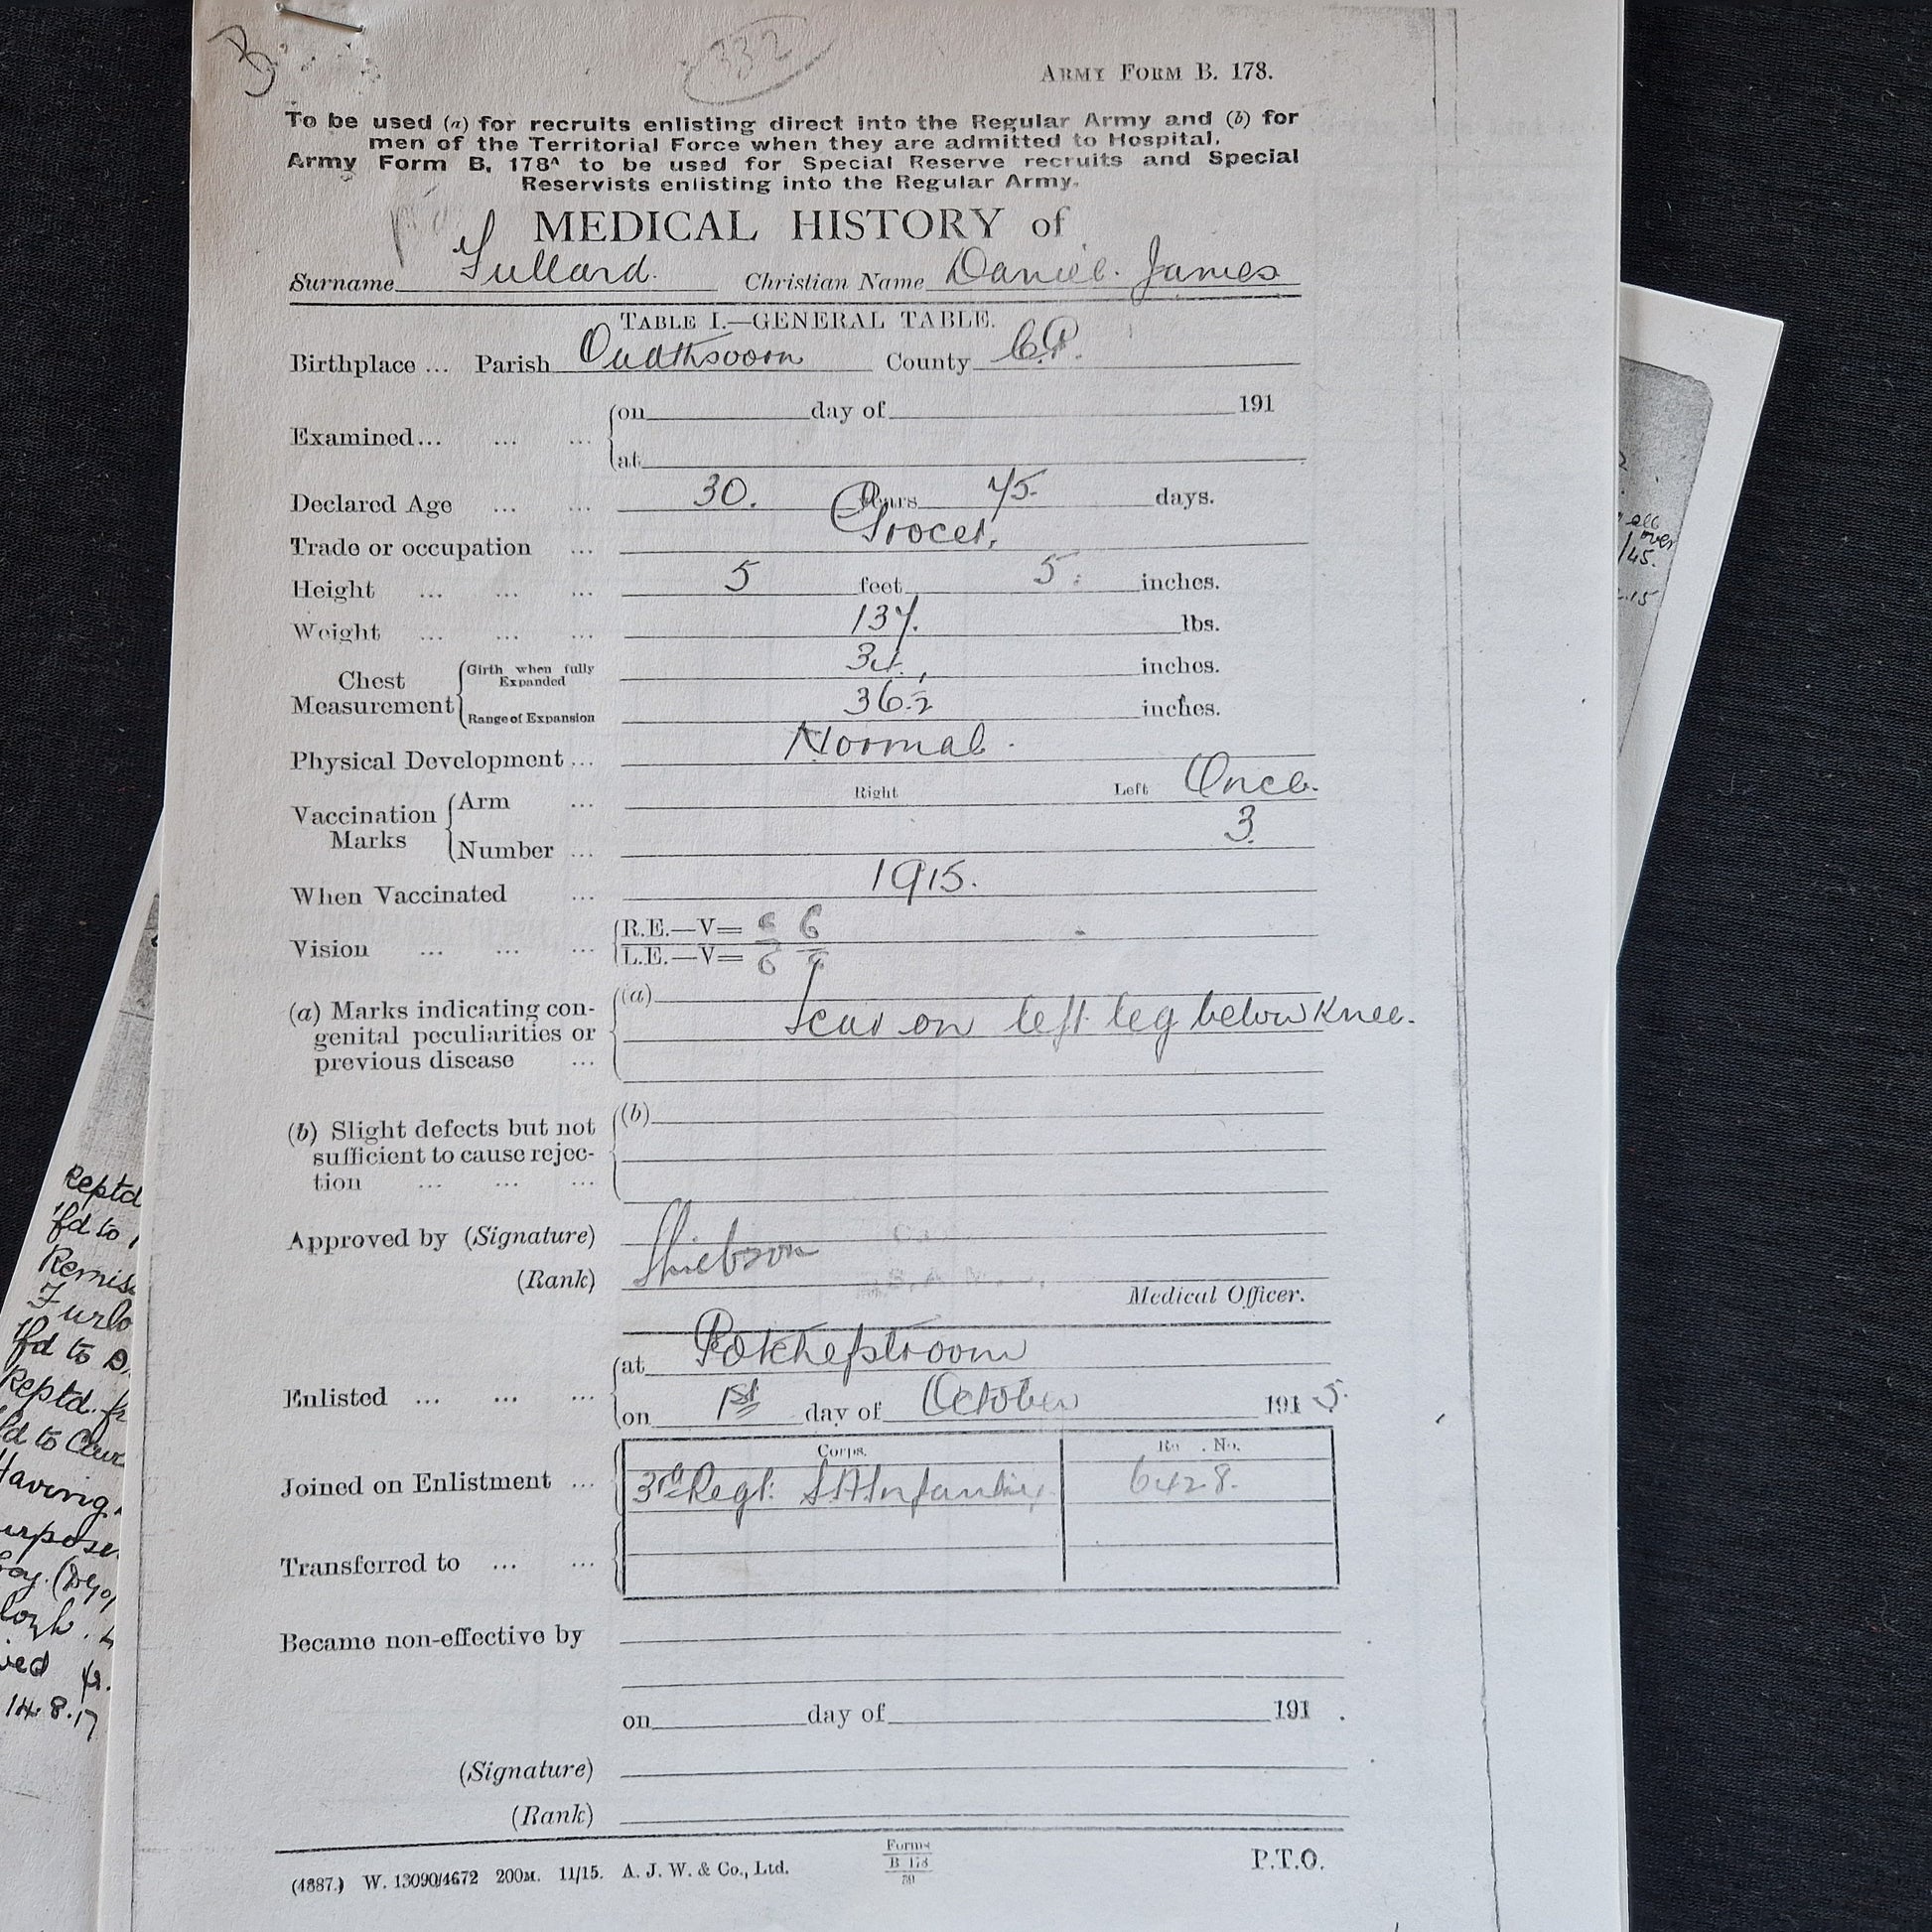 B
332
ARMY FORM B. 178.
To be used (a) for recruits enlisting direct into the Regular Army and (b) for
men of the Territorial Force when they are admitted to Hospital.
Army Form B. 178A to be used for Special Reserve recruits and Special
Reservists enlisting into the Regular Army.
MEDICAL HISTORY of
Surname Fullard. Christian Name Daniel. James
TABLE I.—GENERAL TABLE.
Birthplace ... Parish Oudthsoorn County C.P.
Examined... ... ... on day of 191
at
Declared Age ... ... 30. Years 45. days.
Trade or occupation ... Grocer.
Height ... ... ... 5 feet 5. inches.
Weight ... ... ... 137. lbs.
Chest Measurement Girth when fully Expanded 34. inches.
Range of Expansion 36½ inches.
Physical Development ... Normal.
Vaccination Marks Arm ... Right Left Once.
Number ... 3.
When Vaccinated ... 1915.
Vision ... ... ... R.E.—V= 6 6
L.E.—V= 6
(a) Marks indicating con-
genital peculiarities or
previous disease ...
(a) Scar on left leg below Knee.
(b) Slight defects but not
sufficient to cause rejec-
tion ... ...
(b)
Approved by (Signature)
(Rank)
Medical Officer.
Enlisted ... ... ... at Potchefstroom
on 1st day of October 1915.
Corps. No.
Joined on Enlistment ... 3rd Regt. S A Infantry 6428.
Transferred to ... ...
Became non-effective by
on day of 191
(Signature)
(Rank)
(4887.) W. 13090/4672 200M. 11/15. A. J. W. & Co., Ltd. Forms B 178 P.T.O.
all
over
/45.
.15
Reptd
'fd to
Remis
Furlo
'fd to D.
Reptd. fr
'd to
Having
urpose
14.8.17